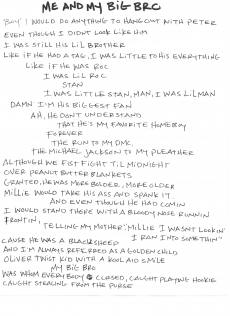 ME AND MY BIG BRO
BOY I WOULD DO ANYTHING TO HANG OUT WITH PETER
EVEN THOUGH I DIDNT LOOK LIKE HIM
I WAS STILL HIS LIL BROTHER
LIKE IF HE HAD A TAG, I WAS LITTLE TO HIS EVERYTHING
LIKE IF HE WAS ROC
I WAS LIL ROC
STAN
I WAS LITTLE STAN, MAN, I WAS LILMAN
DAMN I'M HIS BIGGEST FAN
AH, HE DONT UNDERSTAND
THAT HE'S MY FAVORITE HOMEBOY
FOREVER
THE RUN TO MY DMC
THE MICHAEL JACKSON TO MY PLEATHER
ALTHOUGH WE FIST FIGHT TIL MIDNIGHT
OVER PEANUT BUTTER BLANKETS
GRANTED, HE WAS MORE BOLDER, MORE OLDER
MILLIE WOULD TAKE HIS ASS AND SPANK IT
AND EVEN THOUGH HE HAD COMIN
I WOULD STAND THERE WITH A BLOODY NOSE RUNNIN
FRONTIN,
TELLING MY MOTHER, MILLIE I WASNT LOOKIN'
I RAN INTO SOMETHIN"
CAUSE HE WAS A BLACK SHEEP
AND I'M ALWAYS REFERRED AS A GOLDEN CHILD
OLIVER TWIST KID WITH A KOOLAID SMILE
MY BIG BRO
WAS WHOM EVERYBODY CLOSED, CAUGHT PLAYING HOOKIE
CAUGHT STEALING FROM THE PURSE